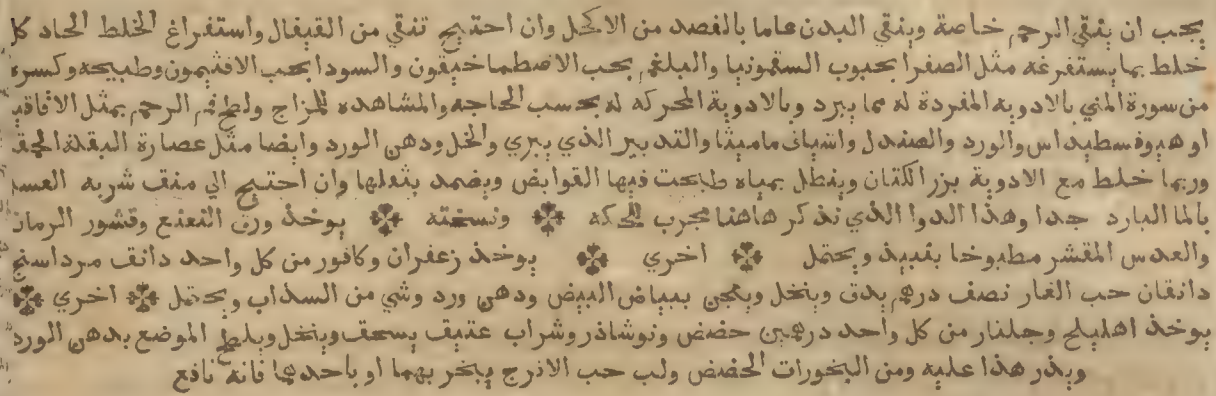 يجب ان ينقي الرحم خاصة وينقي البدن عاما بالفصد من الاكحل وان احتيج تنقي من القيفال واستفراغ الخلط الحاد كل
خلط بما يستفرغه مثل الصفرا بحبوب السقمونيا والبلغم بحب الاصطماخيقون والسودا بحب الافتيمون وطبيخه وكسره
من سورة المني بالادويه المفردة له مما يبرد وبالادوية المحركه له بحسب الحاجه والمشاهده للمزاج ولطخ فم الرحم بمثل الاقاقيا
او هيوفسطيداس والورد والصندل واشياف ماميثا والتدبير الذي يبري والخل ودهن الورد وايضا مثل عصارة البقلة الحمقا
وربما خلط مع الادوية بزر الكتان وينطل بمياه طبخت فيها القوابض ويضمد بثفلها وان احتيج الي منقف شربه العسل
بالما البارد جدا وهذا الدوا الذي نذكر هاهنا مجرب للحكه ونسخته يوخذ ورق النعنع وقشور الرمان
والعدس المقشر مطبوخا بنبيذ ويحتمل اخري يوخذ زعفران وكافور من كل واحد دانق مرداسنج
دانقان حب الغار نصف درهم يدق وينخل ويعجن ببياض البيض ودهن ورد وشي من السذاب ويحتمل اخري
يوخذ اهليلج وجلنار من كل واحد درهمين حضض ونوشاذر وشراب عتيق يسحق وينخل ويلطخ الموضع بدهن الورد
ويذر هذا عليه ومن البخورات الحضض ولب حب الاترج يبخر بهما او باحدهما فانه نافع